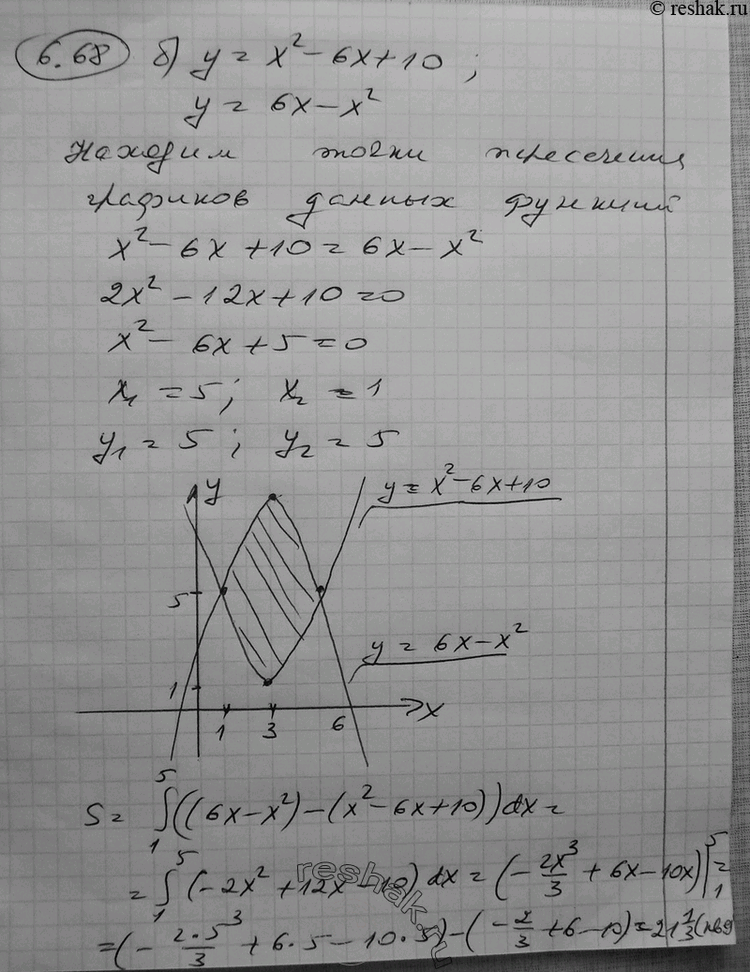 © reshak.ru
6.68 б) y = x² - 6x + 10 ;
y = 6x - x²
Находим точки пересечения
графиков данных функций
x² - 6x + 10 = 6x - x²
2x² - 12x + 10 = 0
x² - 6x + 5 = 0
x₁ = 5 ; x₂ = 1
y₁ = 5 ; y₂ = 5
y
y = x² - 6x + 10
5
y = 6x - x²
1
x
1 3 6
S = ∫₁⁵ ((6x - x²) - (x² - 6x + 10)) dx =
= ∫₁⁵ (-2x² + 12x - 10) dx = (- 2x³/3 + 6x - 10x) |₁⁵ =
= (- 2·5³/3 + 6·5 - 10·5) - (- 2/3 + 6 - 10) = 21 1/3 (кв
reshak.ru